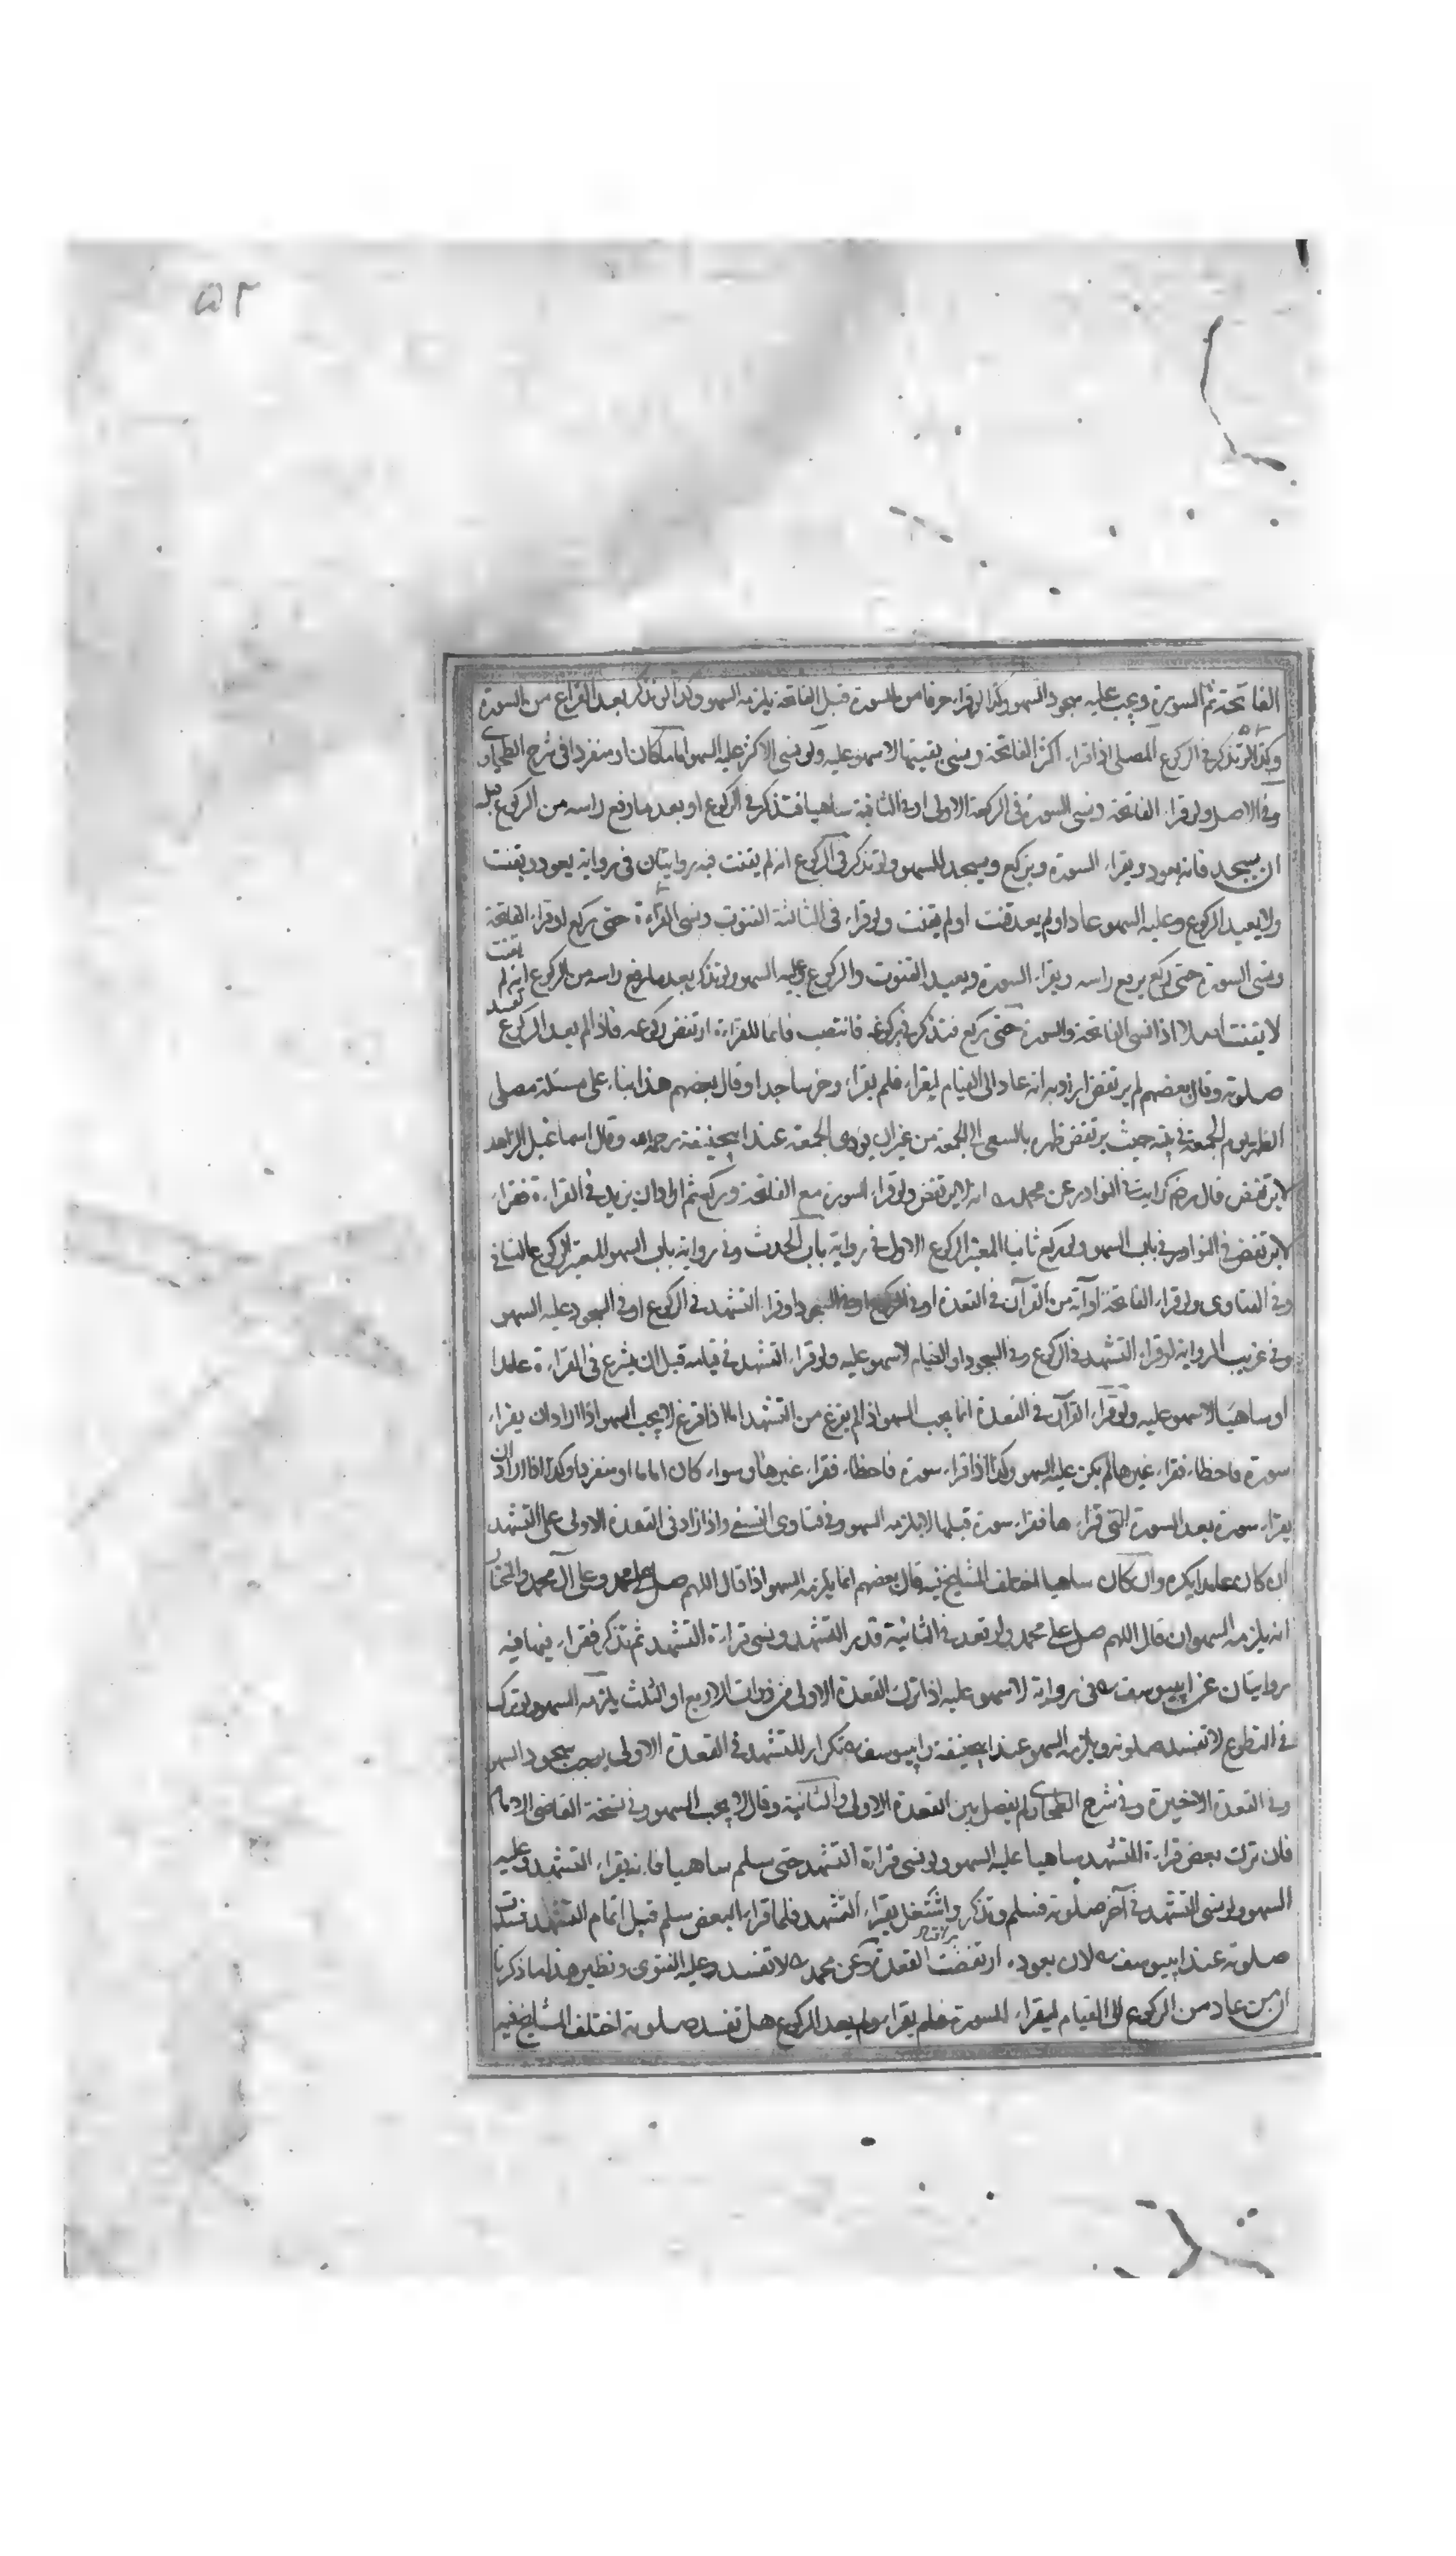 ٥٢
الفاتحة ثم السورة ويجب عليه سجود السهو وكذا لو قراء حرفا من السورة قبل الفاتحة يلزمه السهو وكذا لو تذكر بعد الفراغ من السورة
وكذا لو تذكر في الركوع المصلي اذا قراء اكثر الفاتحة ونسي بقيتها لا سهو عليه ولو نسي الاكثر عليه السهو اماما كان او منفردا في شرح الطحاوي
وفي الاصل ولو قراء الفاتحة ونسي السورة في الركعة الاولى او في الثانية ساهيا فتذكر في الركوع او بعد ما رفع راسه من الركوع قبل
ان يسجد فانه يعود ويقراء السورة ويركع ويسجد للسهو ولو تذكر في الركوع انه لم يقنت فيه روايتان في رواية يعود ويقنت
ولا يعيد الركوع وعليه السهو عاد او لم يعد قنت او لم يقنت ولو قراء في الثالثة القنوت ونسي القراءة حتى ركع او قراء الفاتحة
ونسي السورة حتى ركع يرفع راسه ويقراء السورة ويعيد القنوت والركوع وعليه السهو ولو تذكر بعد ما رفع راسه من الركوع انه لم يقنت
لا يقنت اما اذا نسي الفاتحة والسورة حتى ركع فتذكر في ركوعه فانتصب قائما للقراءة ارتفض ركوعه فاذا لم يعد الركوع تفسد
صلوته وقال بعضهم لم يرتفض انه عاد الى القيام ليقراء فلم يقراء وخر ساجدا وقال بعضهم هذا بناء على مسئلة مصلي
الظهر يوم الجمعة في بيته حيث يرتفض ظهره بالسعي الى الجمعة من غير ان يؤدي الجمعة عند ابيحنيفة رحمه الله وقال اسماعيل الزاهد
لا يرتفض قال في النوادر عن محمد انه لا يرتفض ولو قراء السورة مع الفاتحة وركع ثم اراد ان يزيد في القراءة فقراء
لا يرتفض في النوادر في باب السهو ولو ركع ثانيا المعتبر الركوع الاول في رواية باب الحدث وفي رواية باب السهو المعتبر الركوع الثاني
وفي الفتاوى ولو قراء الفاتحة او آية من القرآن في القعدة او في الركوع او في السجود او قراء التشهد في الركوع او في السجود عليه السهو
وفي غريب الرواية لو قراء التشهد في الركوع وفي السجود او القيام لا سهو عليه ولو قراء التشهد في قيامه قبل ان يشرع في القراءة عامدا
او ساهيا لا سهو عليه ولو قراء القرآن في القعدة انما يجب السهو اذا لم يفرغ من التشهد اما اذا فرغ لا يجب السهو اذا اراد ان يقراء
سورة فاخطاء فقراء غيرها لم يكن عليه السهو وكذا اذا قراء سورة فاخطاء فقراء غيرها وسواء كان اماما او منفردا وكذا اذا اراد ان
يقراء سورة بعد السورة التي قراء ها فقراء سورة قبلها لا يلزمه السهو وفي فتاوى النسفي واذا زاد في القعدة الاولى على التشهد
ان كان عامدا يكره وان كان ساهيا اختلف المشايخ فيه قال بعضهم انما يلزمه السهو اذا قال اللهم صل على محمد وعلى آل محمد والمختار
انه يلزمه السهو ان قال اللهم صل على محمد ولو قعد في الثانية قدر التشهد ونسي قراءة التشهد ثم تذكر فقراء فيها فيه
روايتان عن ابييوسف في رواية لا سهو عليه اذا ترك القعدة الاولى من ذوات الاربع او الثلث يلزمه السهو ولو ترك
في التطوع لا تفسد صلوته ويلزمه السهو عند ابيحنيفة وابييوسف تكرار التشهد في القعدة الاولى يوجب سجود السهو
وفي القعدة الاخيرة وفي شرح الطحاوي لم يفصل بين القعدة الاولى والثانية وقال لا يجب السهو وفي نسخة القاضي الامام
فان ترك بعض قراءة التشهد ساهيا عليه السهو ولو نسي قراءة التشهد حتى سلم ساهيا فانه يقراء التشهد وعليه
السهو ولو نسي التشهد في آخر صلوته فسلم وتذكر واشتغل بقراءة التشهد فلما قراء البعض سلم قبل اتمام التشهد فسدت
صلوته عند ابييوسف لان بعوده ارتفضت القعدة وعن محمد لا تفسد وعليه الفتوى ونظير هذا ما ذكرنا
ان من عاد من الركوع الى القيام ليقراء السورة فلم يقراء ولم يعد الركوع هل تفسد صلوته اختلف المشايخ فيه